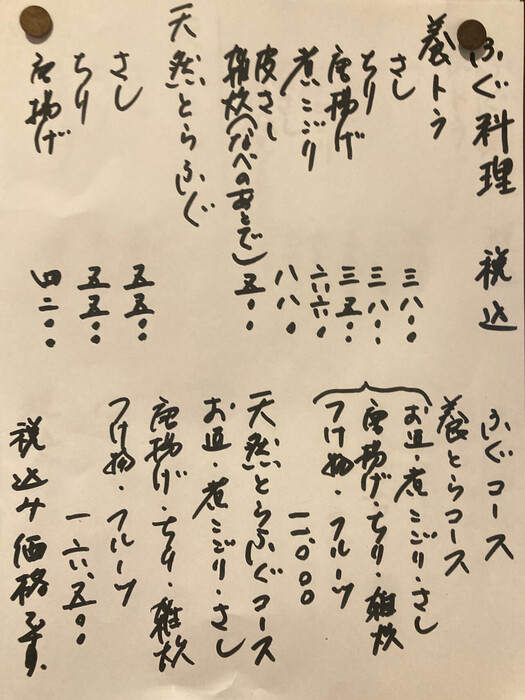 ふぐ料理 税込
養トラ
さし 三八〇〇
ちり 三八〇〇
唐揚げ 三五〇〇
煮こごり 六六〇
皮さし 八八〇
雑炊(なべのあとで) 五〇〇
天然とらふぐ
さし 五五〇〇
ちり 五五〇〇
唐揚げ 四二〇〇
ふぐコース
養とらコース
・煮こごり・さし
唐揚げ・ちり・雑炊
つけ物・フルーツ
一一、〇〇〇
天然とらふぐコース
・煮こごり・さし
唐揚げ・ちり・雑炊
つけ物・フルーツ
一六、五〇〇
税込み価格です。